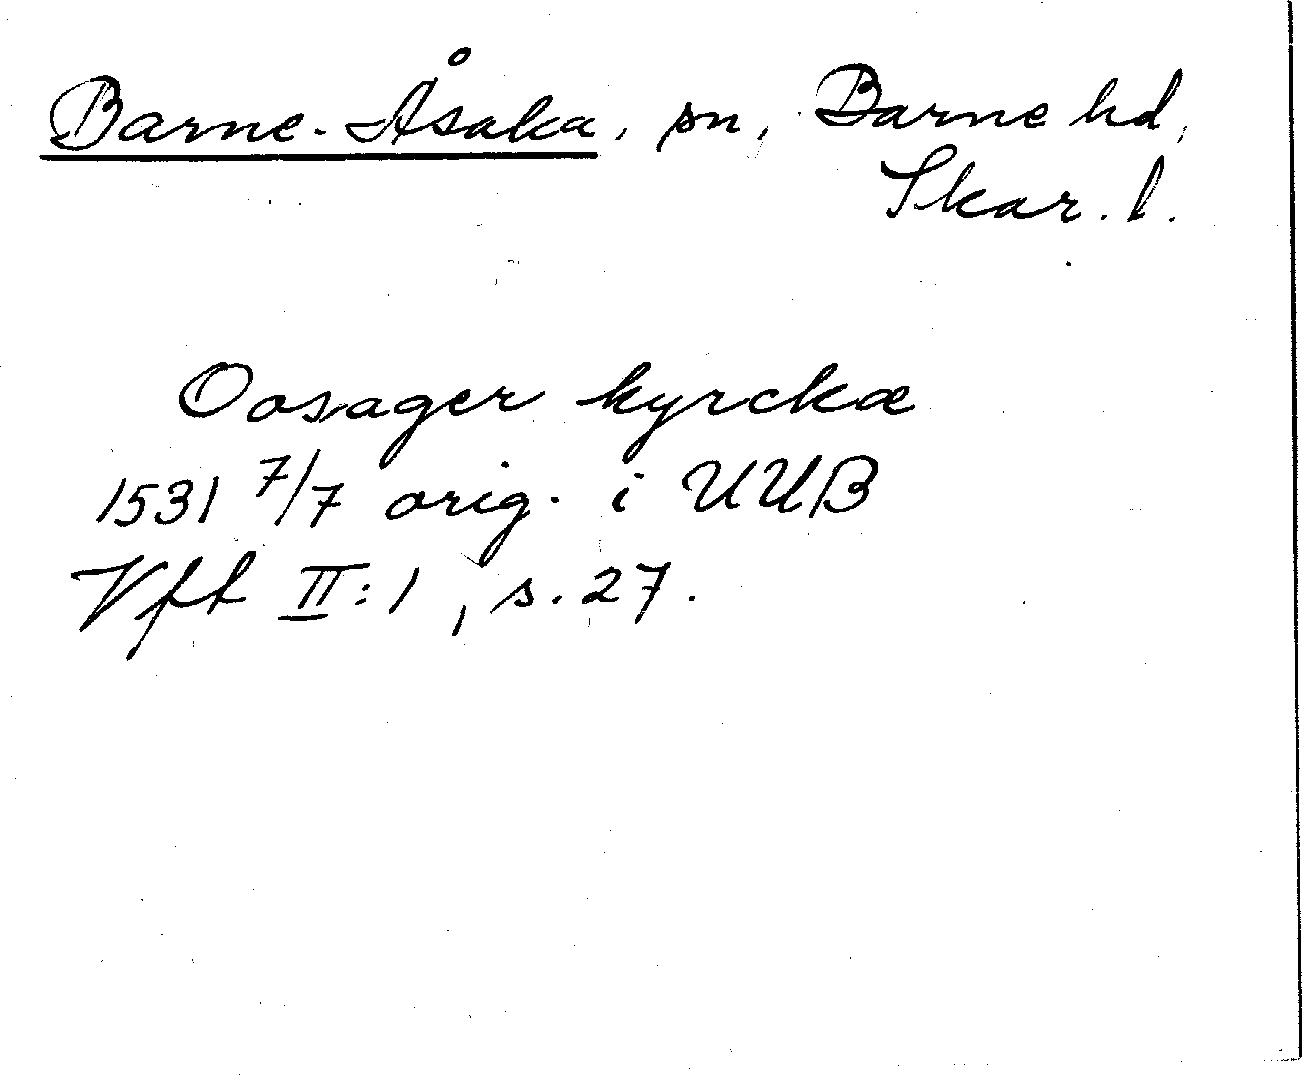 Barne-Åsaka, sn, Barne hd,
Skar. l.
Oosager kyrckæ
1531 7/7 orig. i UUB
Vft II:1, s. 27.